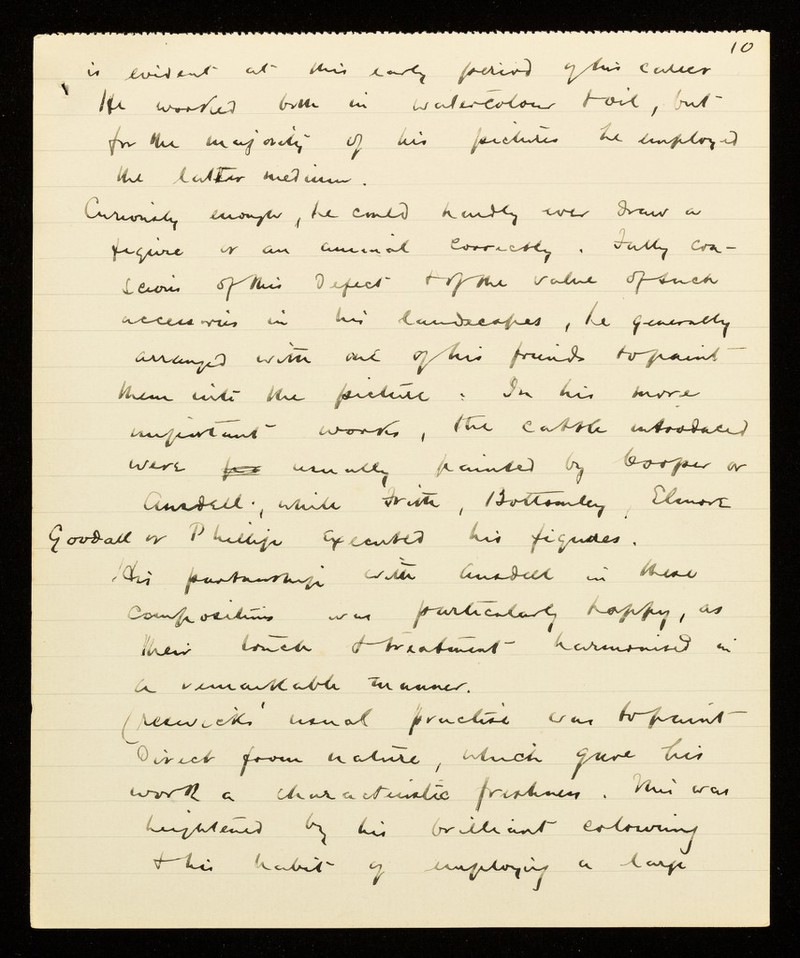 10
is evident at this early period of his career
He worked both in watercolour & oil, but
for the majority of his pictures he employed
the latter medium.
Curiously enough, he could hardly ever draw a
figure or an animal correctly. Fully con-
scious of this defect & of the value of such
accessories in his landscapes, he generally
arranged with one of his friends to paint
them into the picture. In his more
important works, the cattle introduced
were usually painted by Cooper or
Ansdell; while Frith, Bottomley, Elmore
Goodall or Phillip executed his figures.
His partnership with Ansdell in these
compositions was particularly happy, as
their touch & treatment harmonised in
a remarkable manner.
Creswicks' usual practise was to paint
direct from nature, which gave his
work a characteristic freshness. This was
heightened by his brilliant colouring
& his habit of employing a large